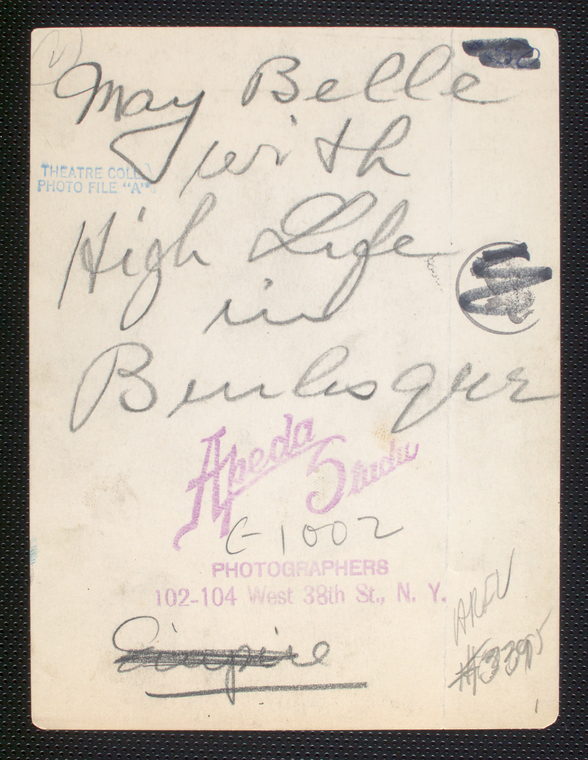 May Belle
with
THEATRE COLL
PHOTO FILE "A"
High Life
in
Burlesque
Apeda Studio
C-1002
PHOTOGRAPHERS
102-104 West 38th St., N. Y.
Empire